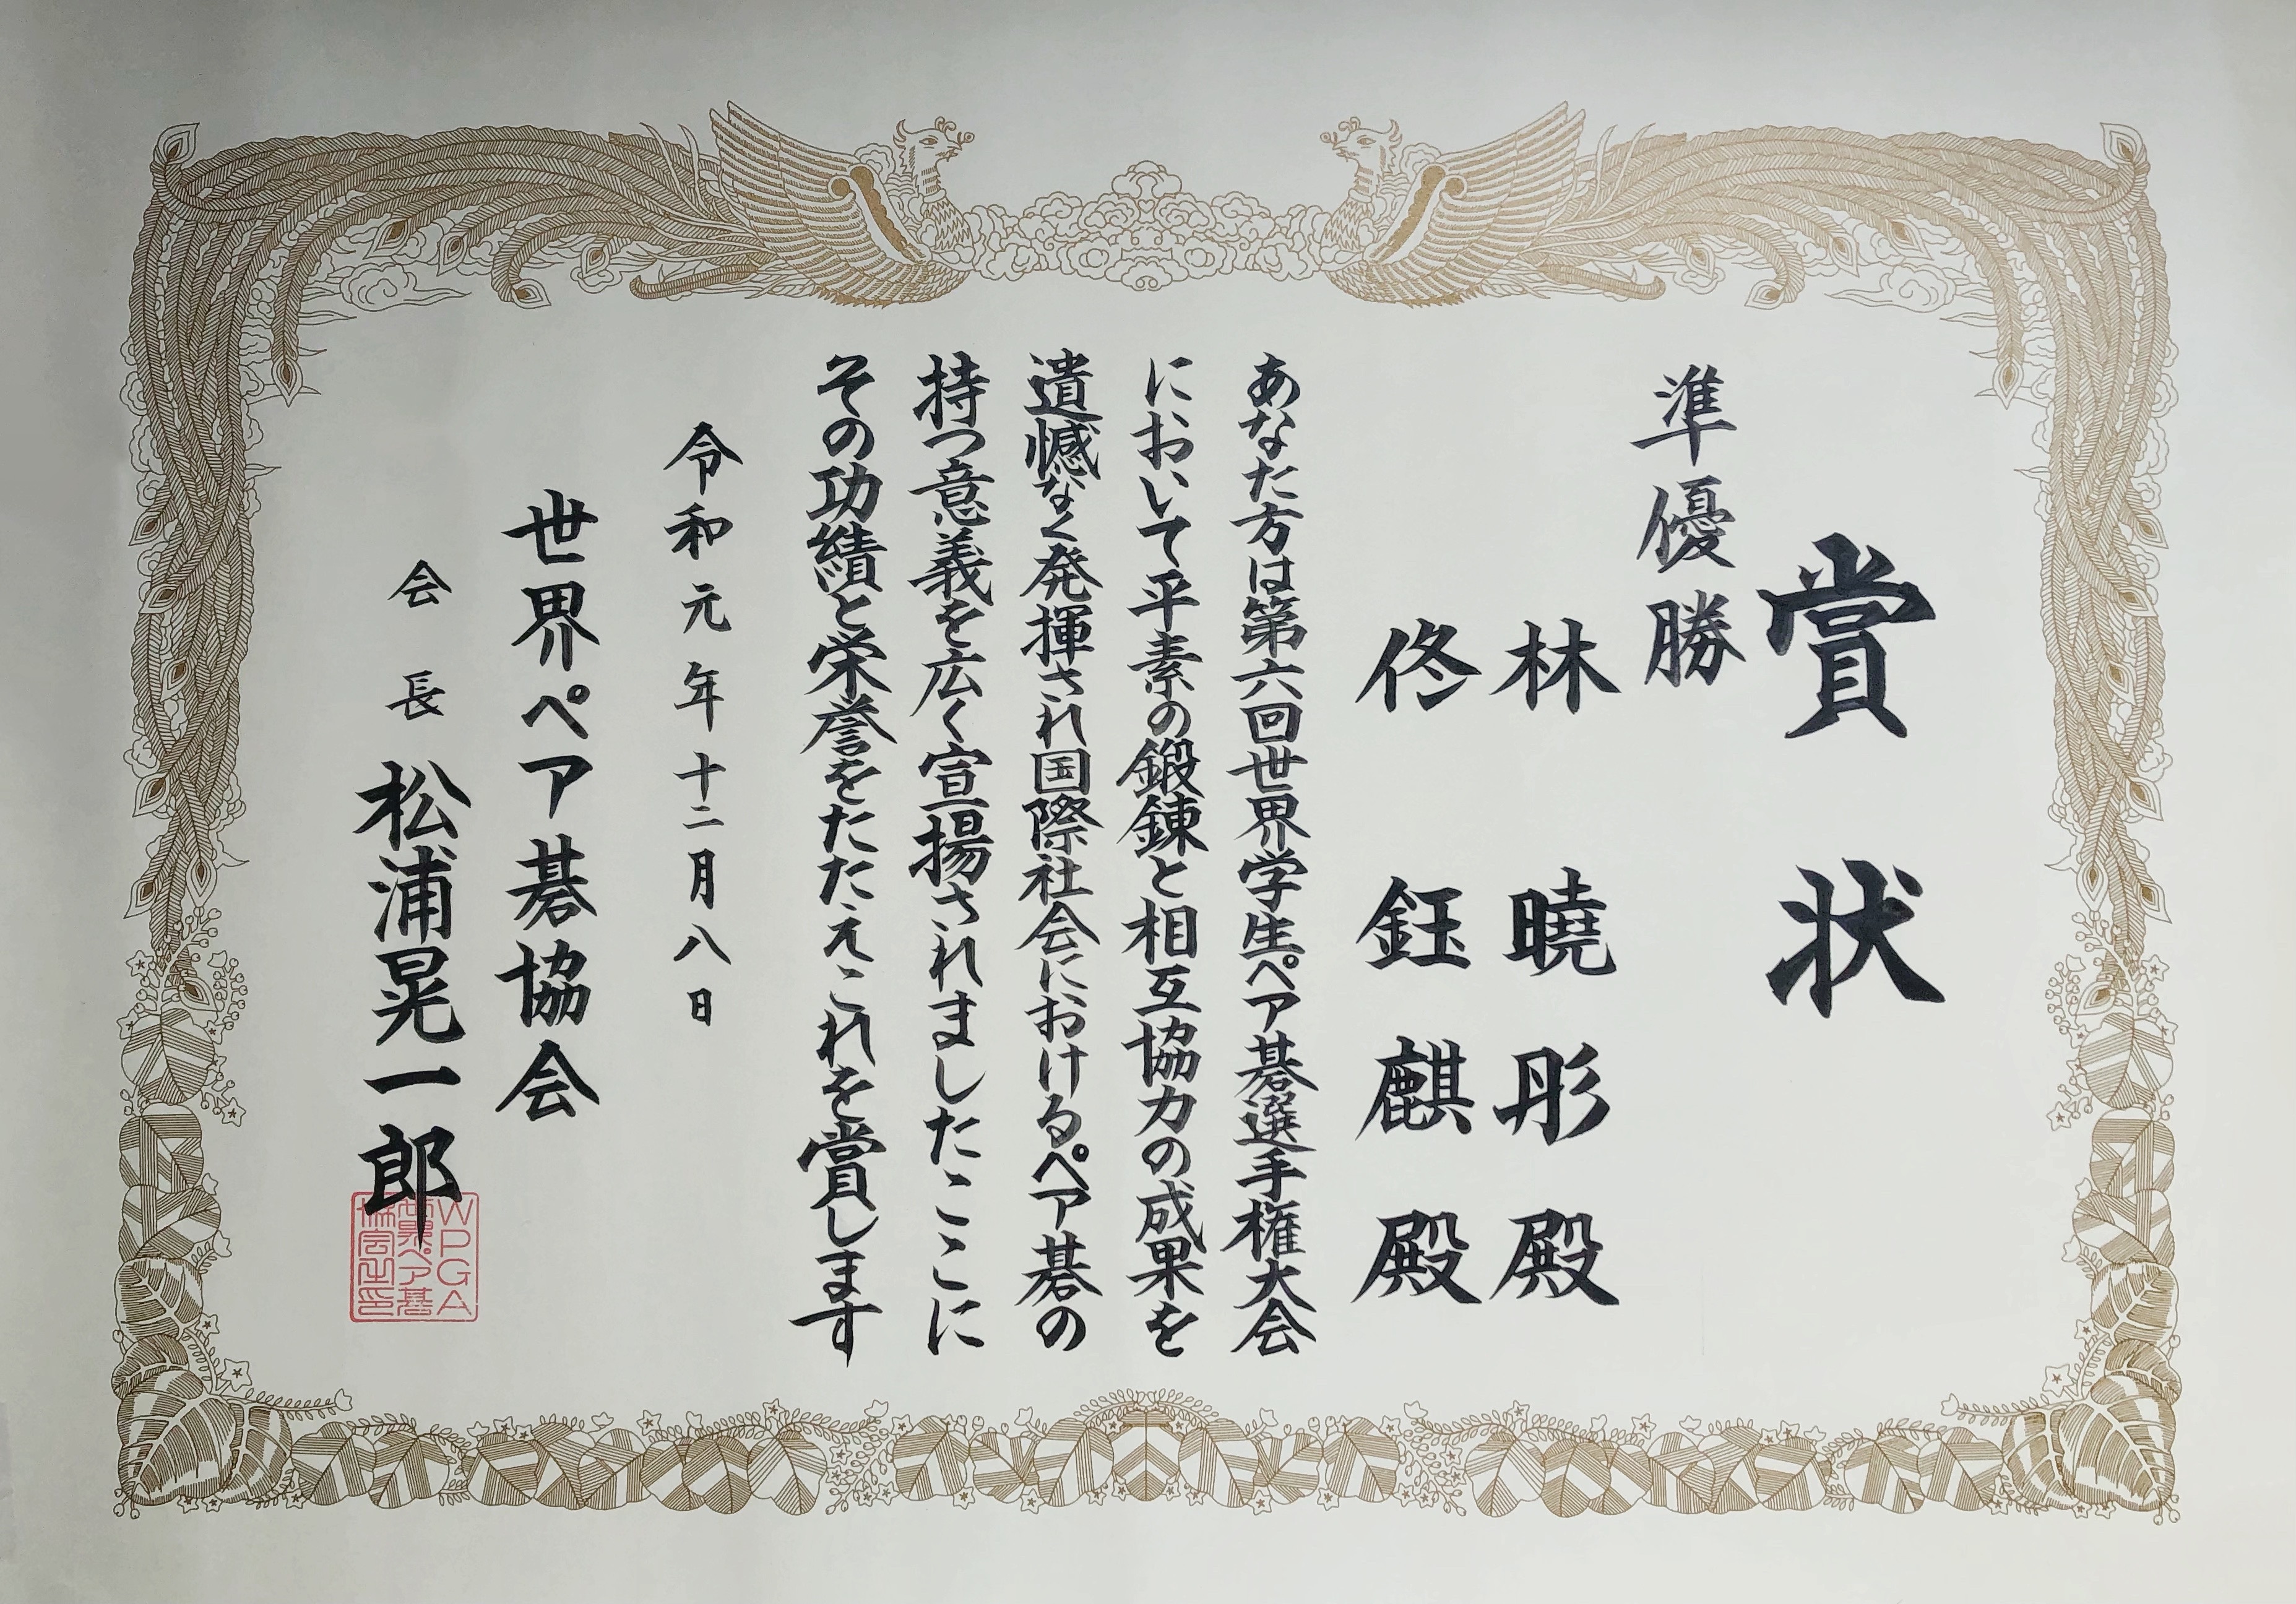 賞状
準優勝
林 曉彤殿
佟 鈺麒殿
あなた方は第六回世界学生ペア碁選手権大会
において平素の鍛錬と相互協力の成果を
遺憾なく発揮され国際社会におけるペア碁の
持つ意義を広く宣揚されましたここに
その功績と栄誉をたたえこれを賞します
令和元年十二月八日
世界ペア碁協会
会長 松浦晃一郎
WPGA
世界ペア碁
協会之印